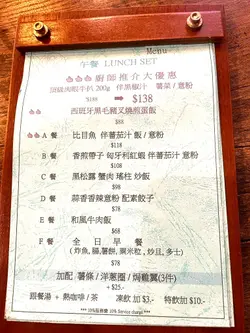 Menu
午餐 LUNCH SET
廚師推介大優惠
頂級肉眼牛扒 200g 伴黑椒汁 薯菜 / 意粉
$188 → $138
西班牙黑毛豬叉燒煎蛋飯
$68
A 餐 比目魚 伴蕃茄汁飯 / 意粉
$118
B 餐 香煎帶子 匈牙利紅蝦 伴蕃茄汁意粉
$98
C 餐 黑松露 蟹肉 瑤柱 炒飯
$98
D 餐 蒜香香辣意粉 配素餃子
$78
E 餐 和風牛肉飯
$68
F 餐 全日早餐
(炸魚, 腸, 薯餅, 粟米粒, 炒旦, 多士)
$78
加配 薯條 / 洋蔥圈 / 焗雞翼(3件)
+ $25.-
跟餐湯 + 熱咖啡 / 茶 凍飲加 $3.- 特飲加 $10.-
*** 10%服務費 10% Service charge ***